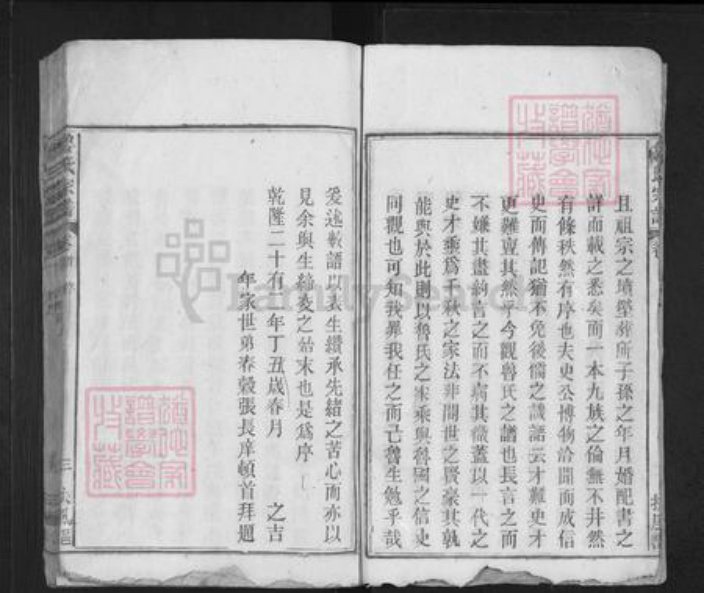 且祖宗之墳塋葬所子孫之年月婚配書之
詳而載之悉矣而一本九族之倫無不井然
有條秩然有序也夫史公博物洽聞而成信
史而傳記猶不免後儒之譏語云才難史才
更難豈其然乎今觀魯氏之譜也長言之而
不嫌其盡約言之而不病其微蓋以一代之
史才乘爲千秋之家法非間世之賢豪其孰
能與於此則以魯氏之家乘與魯國之信史
同觀也可知我罪我任之而已魯生勉乎哉
爰述數語以表生纘承先緒之苦心而亦以
見余與生締交之始末也是爲序
乾隆二十有 年丁丑歲春月 之吉
年家世弟春穀張長庠頓首拜題
氏宗譜
三 扶風
FamilySearch
譜學會